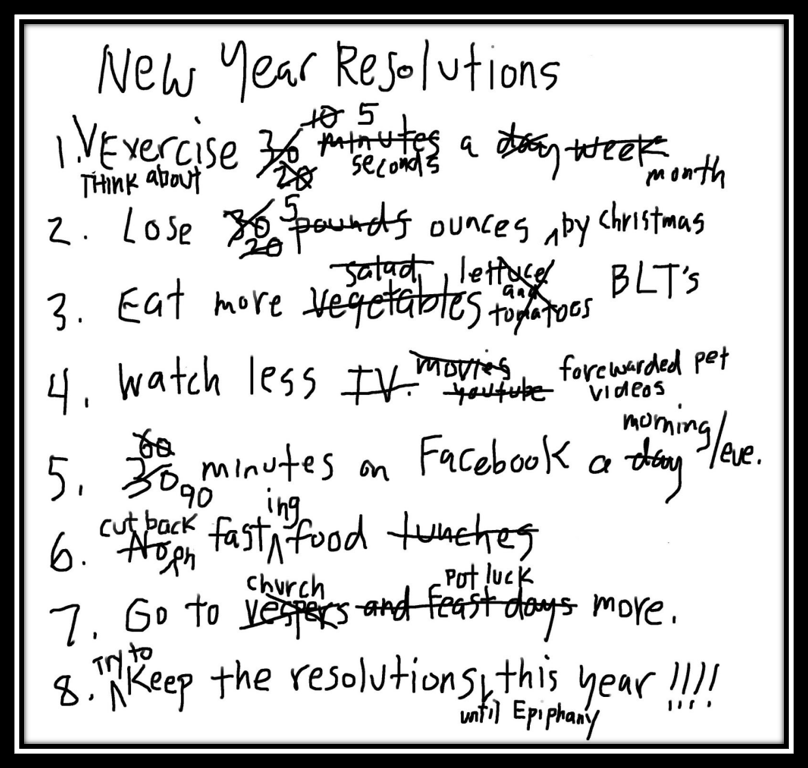 New Year Resolutions
10 5
1. Exercise 30 minutes a day week
Think about 20 seconds month
2. Lose 30 5 pounds ounces by Christmas
20
salad lettuce BLT's
3. Eat more vegetables and tomatoes
4. Watch less T.V. movies forewarded pet
youtube videos
60 morning/eve.
5. 30 90 minutes on Facebook a day
cut back ing
6. No on fast food lunches
church pot luck
7. Go to vespers and feast days more.
Try to
8. Keep the resolutions, this year !!!!
until Epiphany